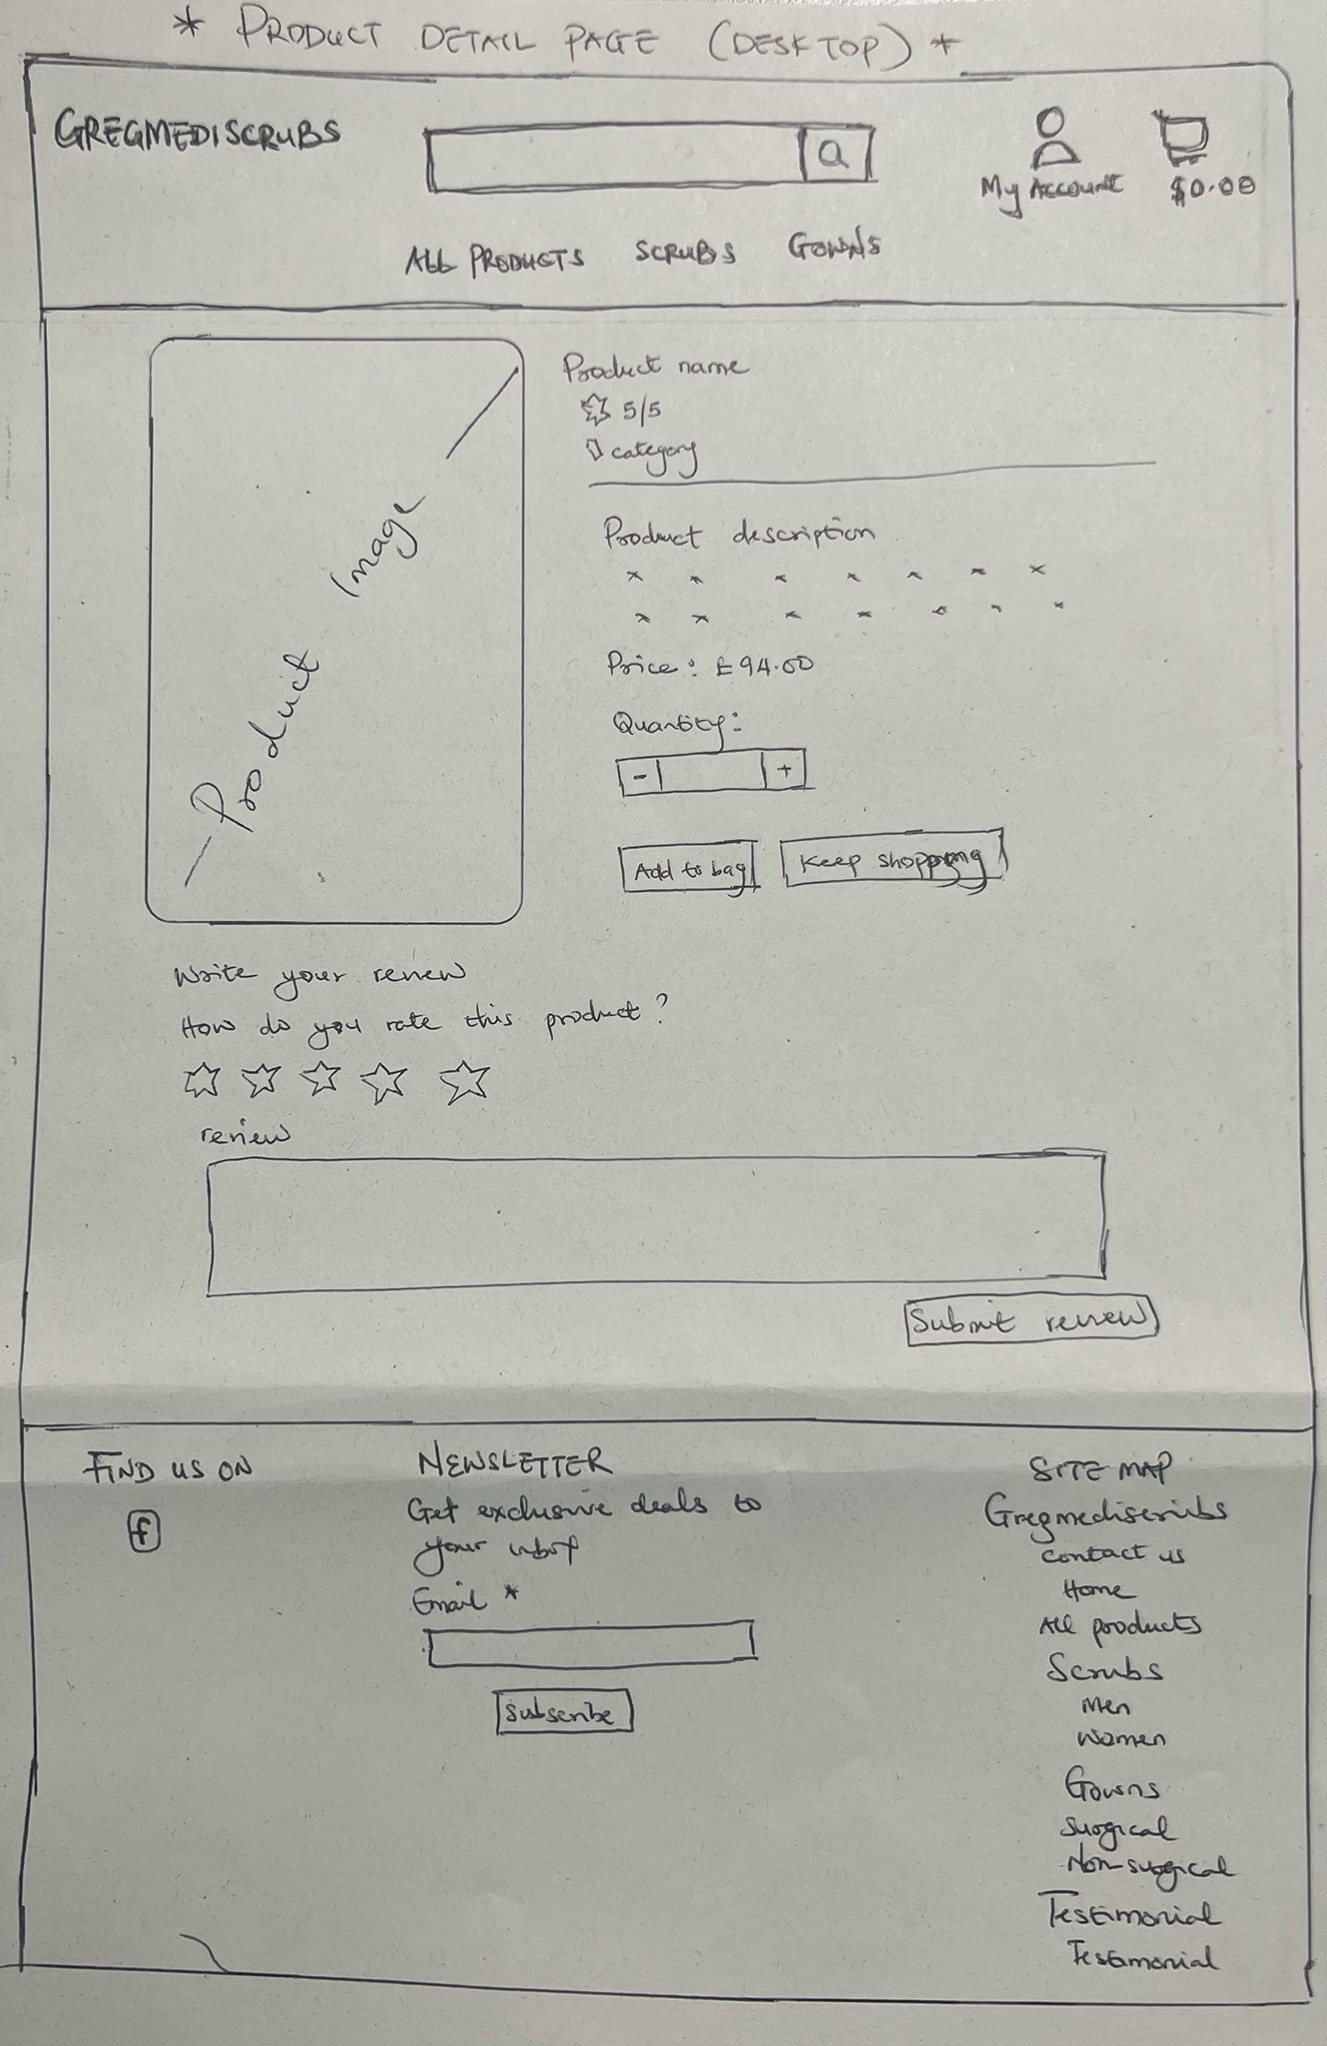 * PRODUCT DETAIL PAGE (DESKTOP) *
GREGMEDISCRUBS
My Account
$0.00
ALL PRODUCTS SCRUBS GOWNS
Product name
5/5
category
Product Image
Product description
Price: £94.00
Quantity:
- +
Add to bag
Keep shopping
Write your review
How do you rate this product?
review
Submit review
FIND US ON
f
NEWSLETTER
Get exclusive deals to
your inbox
Email *
Subscribe
SITE MAP
Gregmediscrubs
Contact us
Home
All products
Scrubs
Men
Women
Gowns
Surgical
Non-surgical
Testimonial
Testimonial